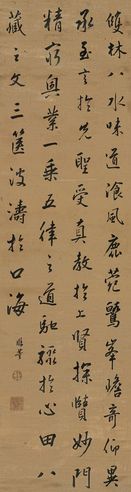 雙林八水味道飡風鹿菀鷲峯瞻奇仰異
承至言於先聖受真教於上賢探賾妙門
精窮奧業一乘五律之道馳驟於心田八
藏之文三篋波濤於口海